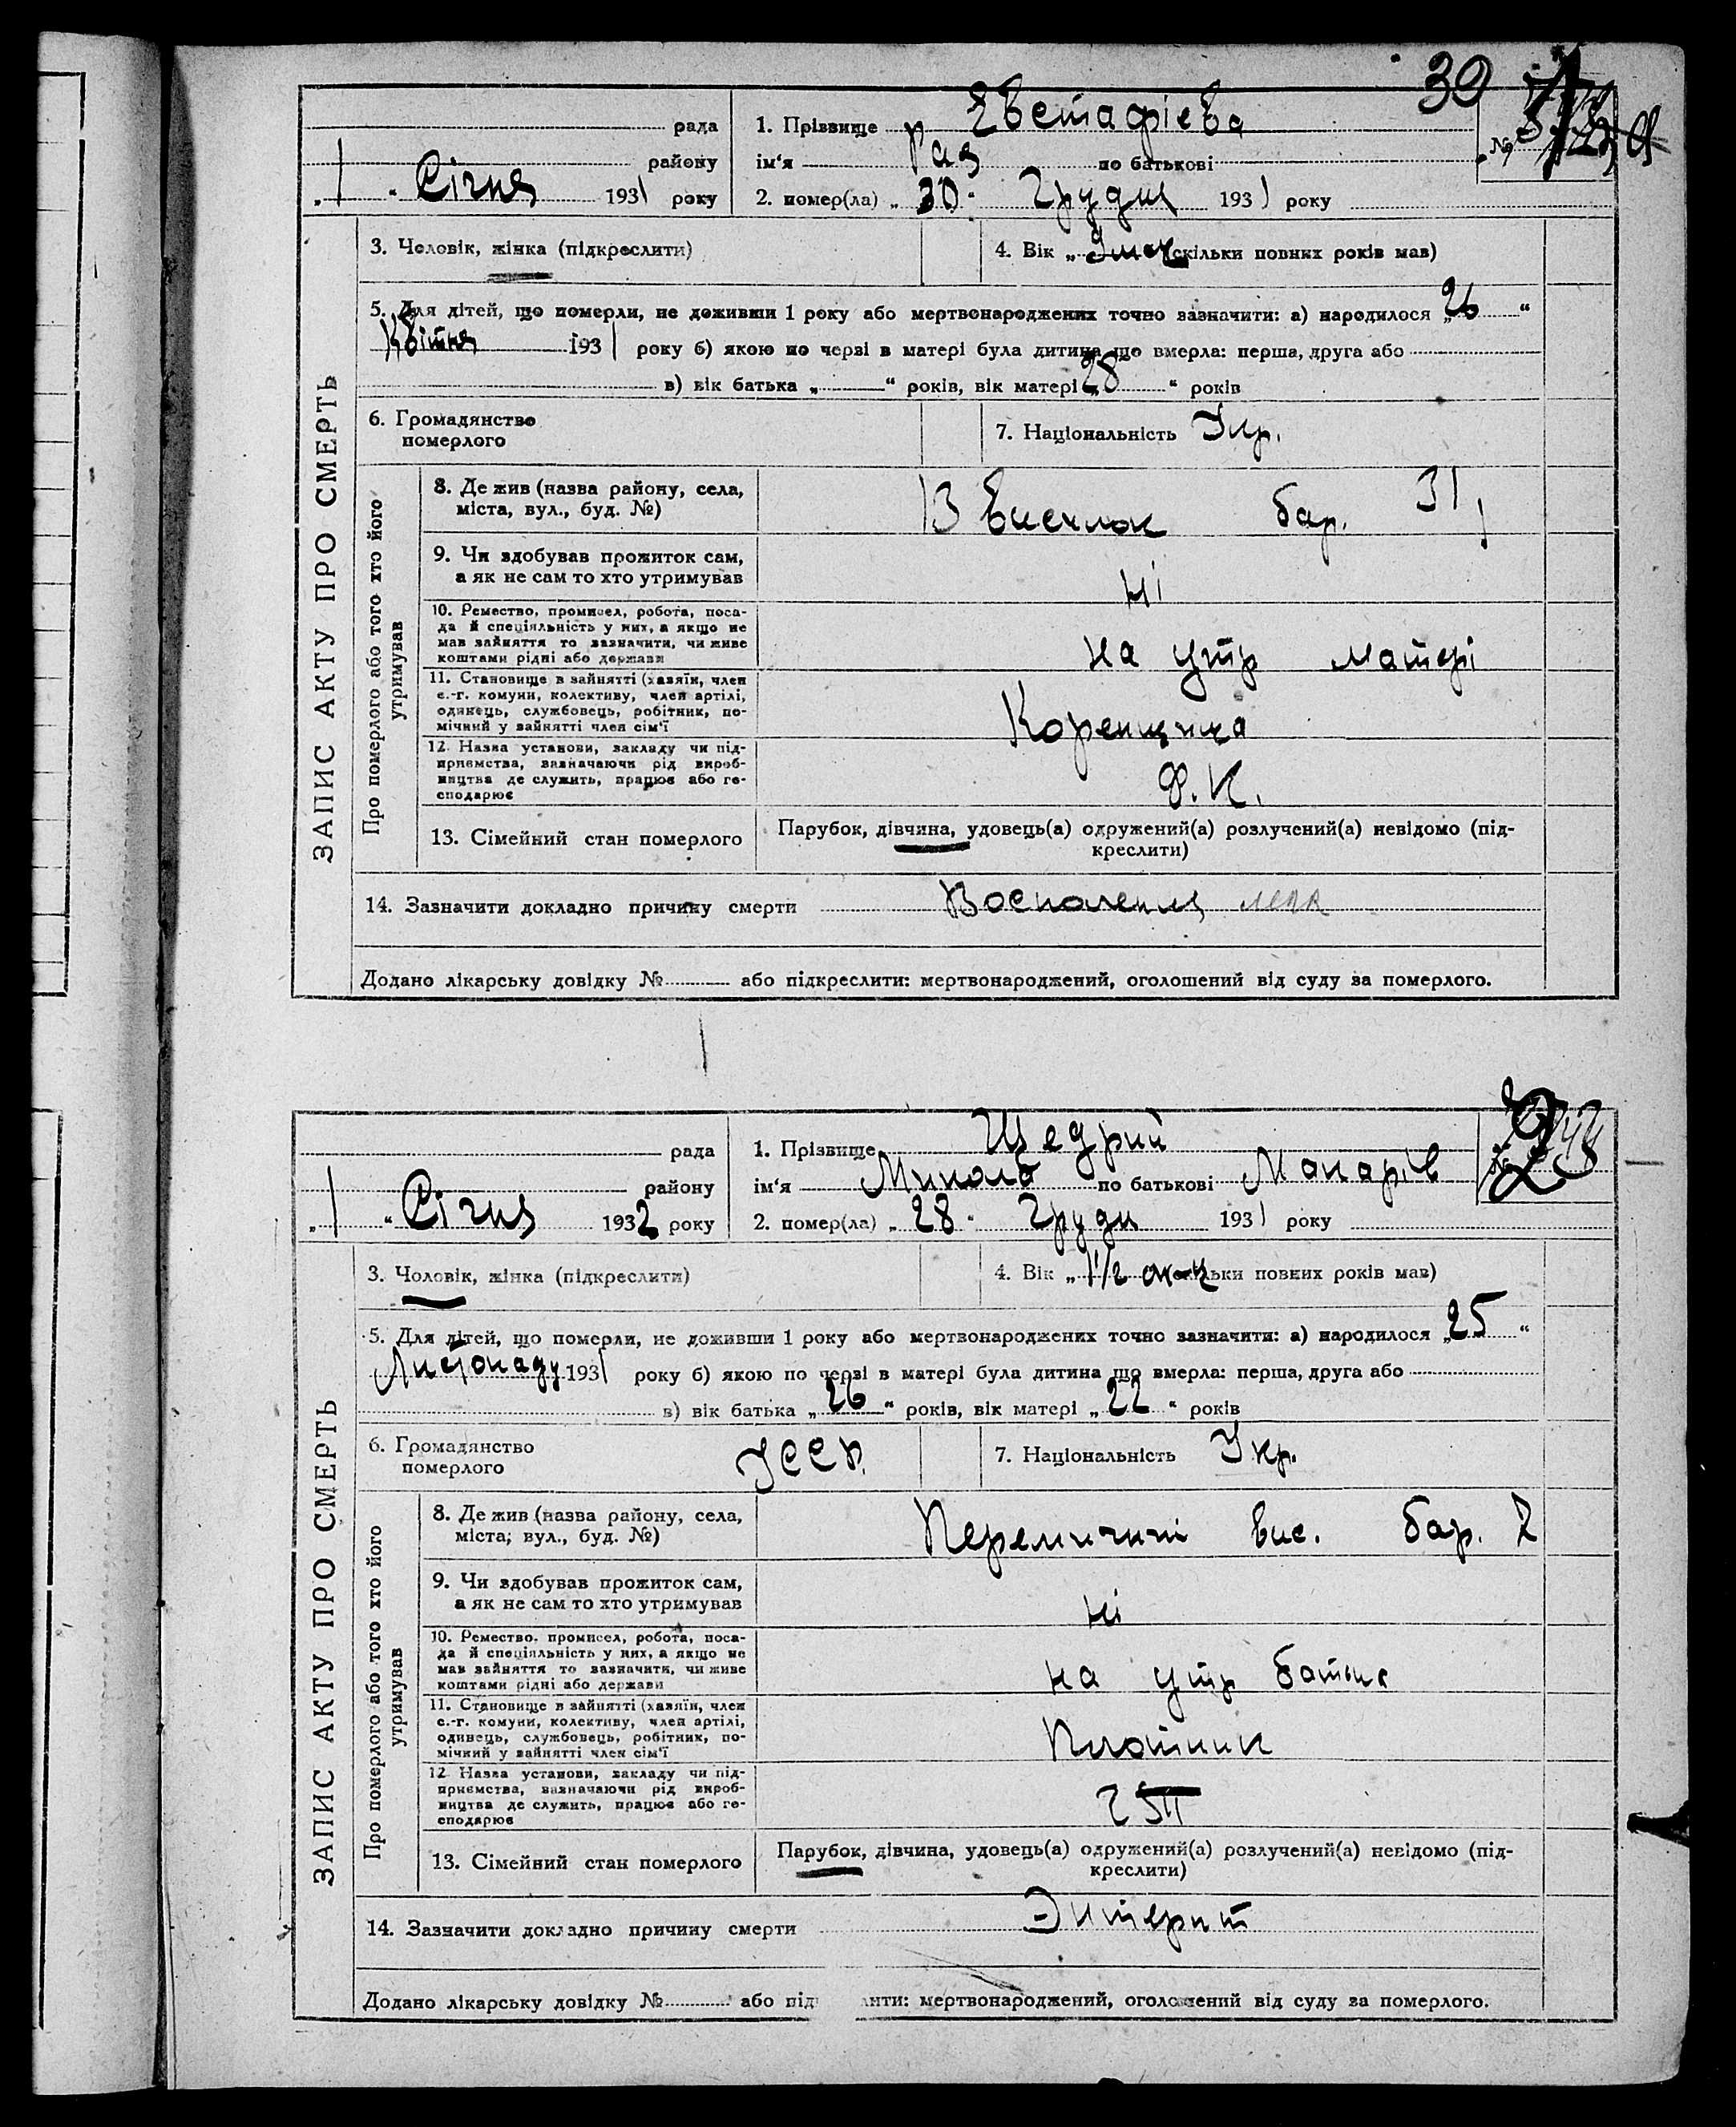 30
рада
1. Прізвище Євстафієва
№
району
ім‘я Рая по батькові
„1“ Січня 1931 року
2. помер(ла) „30“ Грудня 1931 року
3. Чоловік, жінка (підкреслити)
4. Вік „9 м-ц скільки повних років мав)
5. Для дітей, що померли, не доживши 1 року або мертвонароджених точно зазначити: а) народилося „26“
Квітня 1931 року б) якою по черві в матері була дитина що вмерла: перша, друга або
в) вік батька „ “ років, вік матері „28“ років
6. Громадянство
померлого
7. Національність Укр.
ЗАПИС АКТУ ПРО СМЕРТЬ
Про померлого або того хто його
утримував
8. Де жив (назва району, села,
міста, вул., буд. №)
бар. 31
9. Чи здобував прожиток сам,
а як не сам то хто утримував
ні
10. Ремество, промисел, робота, поса-
да й спеціяльність у них, а якщо не
мав зайняття то зазначити, чи живе
коштами рідні або держави
на утр матері
11. Становище в зайнятті (хазяїн, член
с.-г. комуни, колективу, член артілі,
одинець, службовець, робітник, по-
мічний у зайнятті член сім‘ї
12. Назва установи, закладу чи під-
приємства, вазначаючи рід вироб-
ництва де служить, працює або го-
сподарює
Ф. К.
13. Сімейний стан померлого
Парубок, дівчина, удовець(а) одружений(а) розлучений(а) невідомо (під-
креслити)
14. Зазначити докладно причину смерти Воспаления легк
Додано лікарську довідку № або підкреслити: мертвонароджений, оголошений від суду за померлого.
рада
1. Прізвище Щедрий
№ 2
району
ім‘я Микола по батькові Макарів
„1“ Січня 1932 року
2. помер(ла) „28“ Грудн 1931 року
3. Чоловік, жінка (підкреслити)
4. Вік „1 1/2 м-ц скільки повних років мав)
5. Для дітей, що померли, не доживши 1 року або мертвонароджених точно зазначити: а) народилося „25“
Листопаду 1931 року б) якою по черві в матері була дитина що вмерла: перша, друга або
в) вік батька „26“ років, вік матері „22“ років
6. Громадянство
померлого
УССР.
7. Національність Укр.
ЗАПИС АКТУ ПРО СМЕРТЬ
Про померлого або того хто його
утримував
8. Де жив (назва району, села,
міста, вул., буд. №)
вис. бар. 2
9. Чи здобував прожиток сам,
а як не сам то хто утримував
ні
10. Ремество, промисел, робота, поса-
да й спеціяльність у них, а якщо не
мав зайняття то зазначити, чи живе
коштами рідні або держави
на утр батька
11. Становище в зайнятті (хазяїн, член
с.-г. комуни, колективу, член артілі,
одинець, службовець, робітник, по-
мічний у зайнятті член сім‘ї
Плотник
12 Назва установи, закладу чи під-
приємства, вазначаючи рід вироб-
ництва де служить, працює або го-
сподарює
13. Сімейний стан померлого
Парубок, дівчина, удовець(а) одружений(а) розлучений(а) невідомо (під-
креслити)
14. Зазначити докладно причину смерти Энтерит
Додано лікарську довідку № або підкреслити: мертвонароджений, оголошений від суду за померлого.